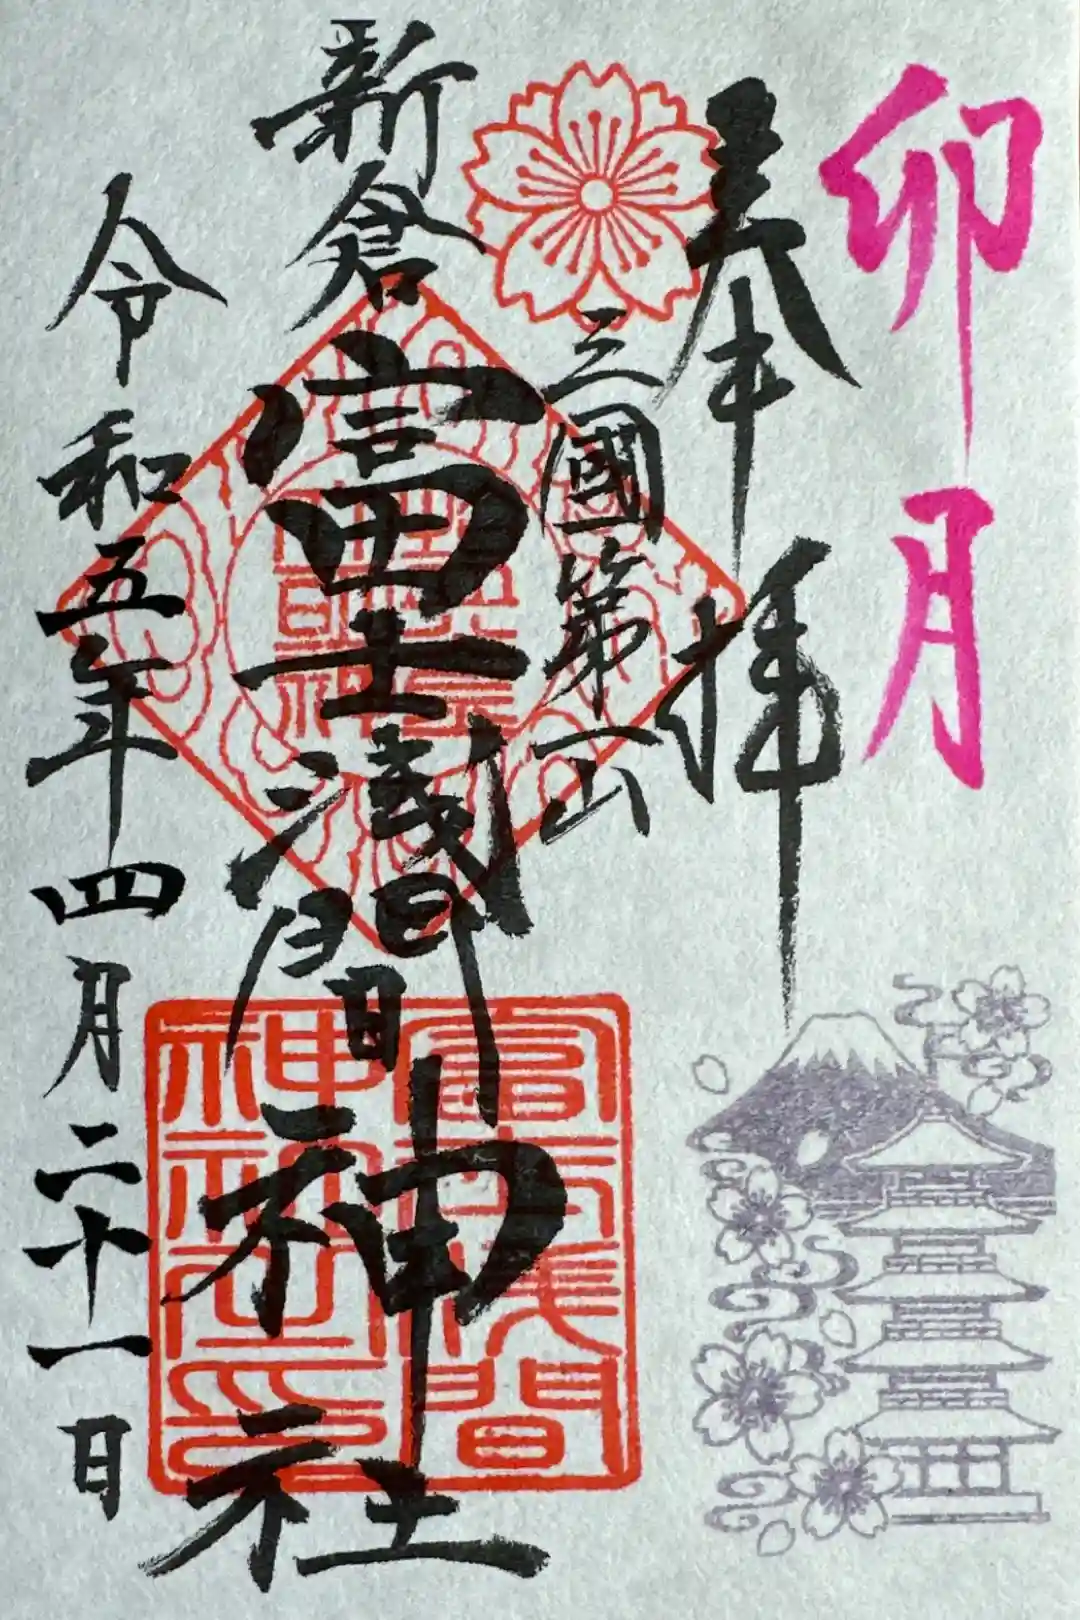 卯月
奉本拝
三國第一山
新倉富士淺間神社
令和五年四月二十一日
富士浅間
神社之印